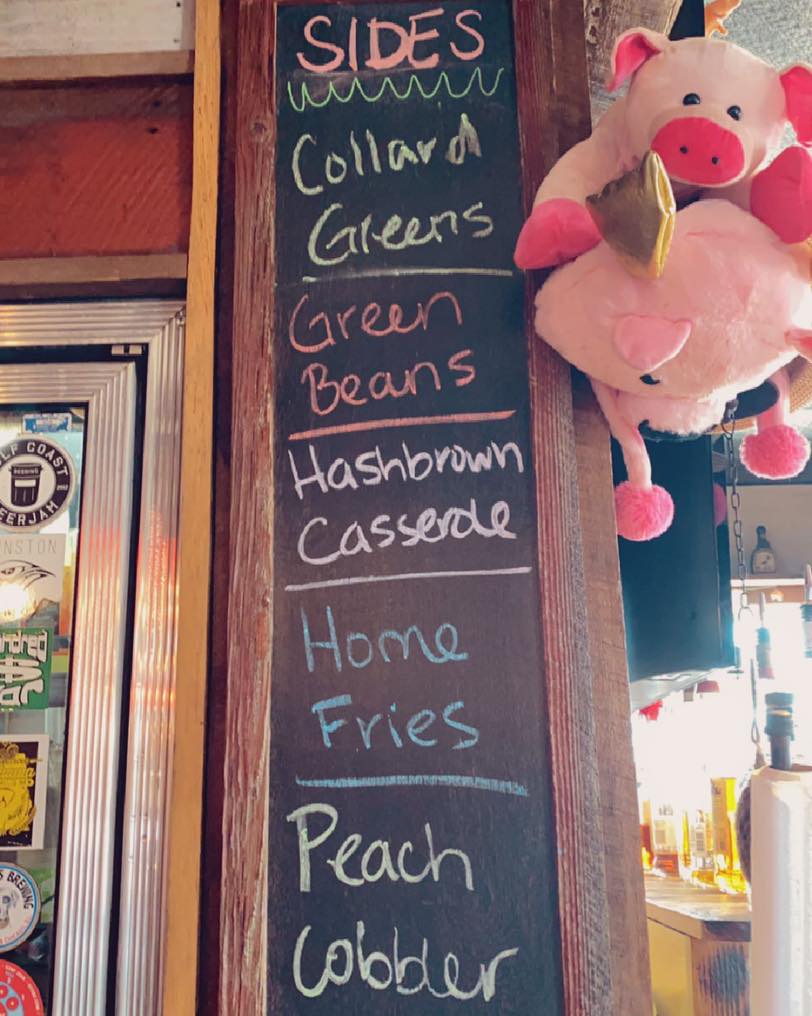 SIDES
Collard
Greens
Green
Beans
Hashbrown
Casserole
Home
Fries
Peach
Cobbler
LF COAST
BREWING
EERJAM
NSTON
S BREWING